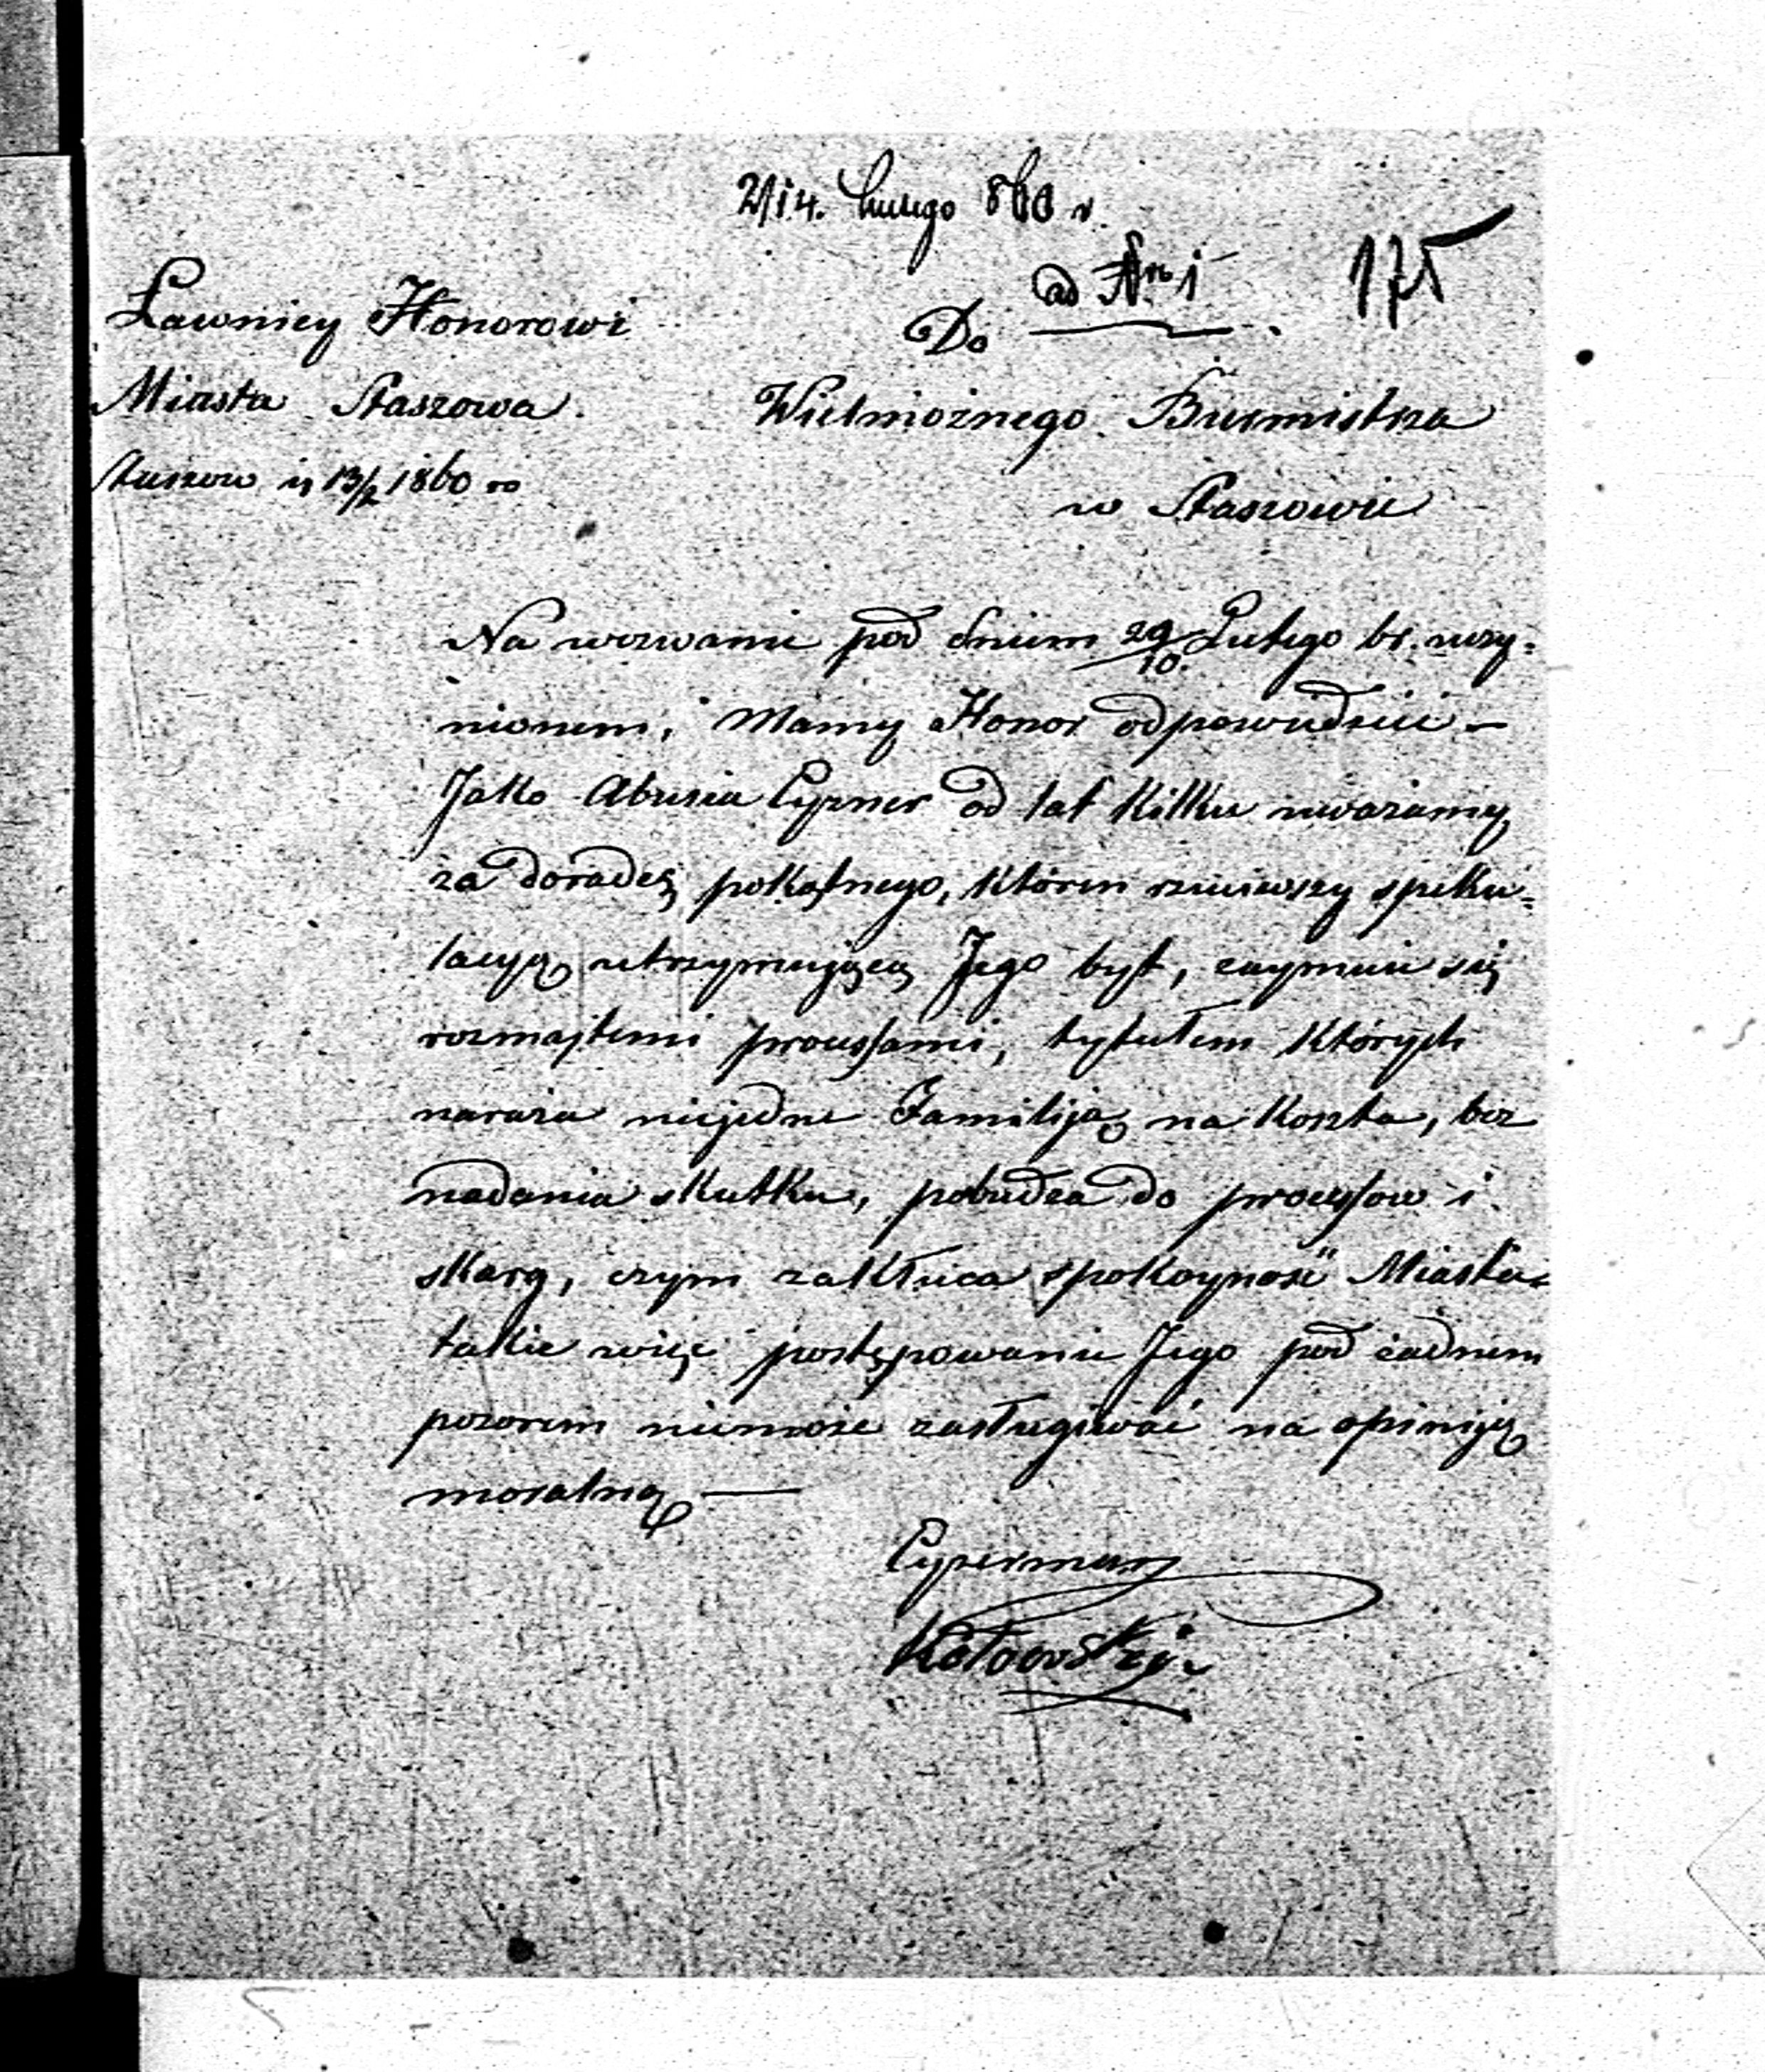 2/14. Lutego 860 r.
ad Nr 1
175
Ławnicy Honorowi
Miasta Staszowa.
Staszow 13/2 1860 ro
Do
Wielmożnego Burmistrza
w Staszowie
Na wezwanie pod dniem 29/10. Lutego br. uczy=
nionem, Mamy Honor odpowiedzieć –
Jako Abusia Cyzner od lat kilku uważamy
za doradcę pokątnego, któren rzuciwszy speku=
lacyą utrzymującą Jego byt, zaymuie się
rozmajtemi processami, tytułem których
naraża niejedne Familiją na koszta, bez
nadania skutku, pobudza do processow i
skarg, czym zakłuca spokoyność Miasta
takie więc postępowanie Jego pod żadnem
pozorem niemoże zasługiwać na opiniją
moralną —
Cyzerman
Kotowski